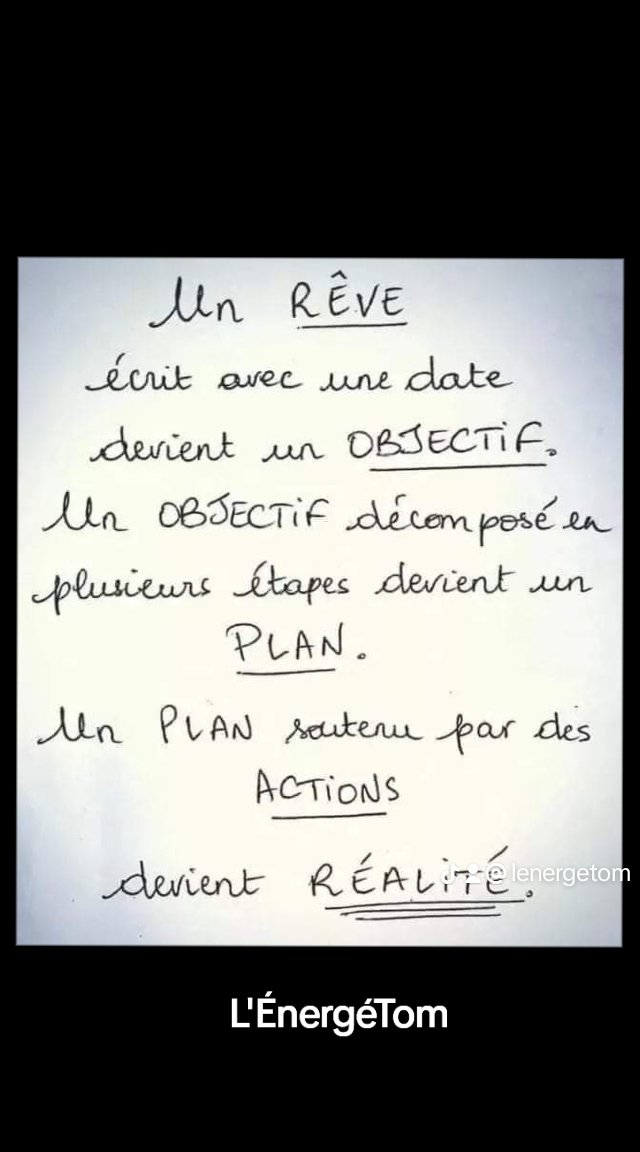 Un RÊVE
écrit avec une date
devient un OBJECTiF.
Un OBJECTiF décomposé en
plusieurs étapes devient un
PLAN.
Un PLAN soutenu par des
ACTiONS
devient RÉALiTÉ.
@lenergetom
L'ÉnergéTom